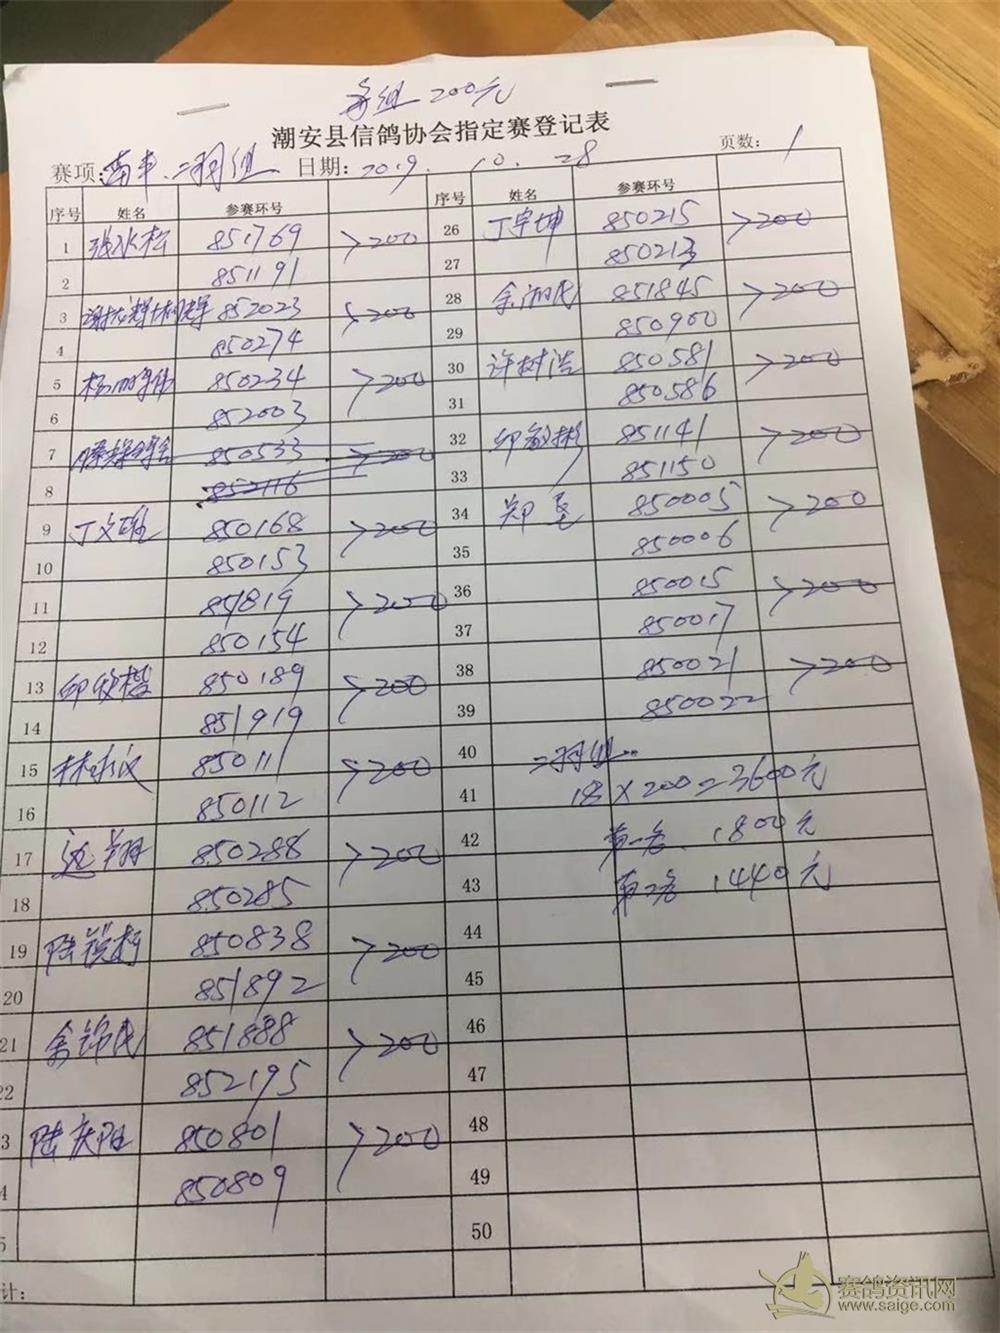 每组 200元
潮安县信鸽协会指定赛登记表
赛项: 南丰 二羽组 日期: 2019. 10. 28 页数: 1
序号 姓名 参赛环号
1 张冰松 851769 >200
2 851191
3 852023 >200
4 850274
5 850234 >200
6 852003
7 850533 >200
8 852116
9 丁文雄 850168 >200
10 850153
11 851819 >200
12 850154
13 850189 >200
14 851919
15 850111 >200
16 850112
17 850288 >200
18 850285
19 850838 >200
20 851892
21 余锦民 851888 >200
22 852195
3 陆庆阳 850801 >200
4 850809
5
计:
序号 姓名 参赛环号
26 丁宇坤 850215 >200
27 850213
28 余湘民 851845 >200
29 850900
30 许树浩 850581 >200
31 850586
32 851141 >200
33 851150
34 郑 850005 >200
35 850006
36 850015 >200
37 850017
38 850021 >200
39 850022
40 二羽组..
41 18×200=3600元
42 第一名 1800元
43 第二名 1440元
44
45
46
47
48
49
50
赛鸽资讯网
www.saige.com